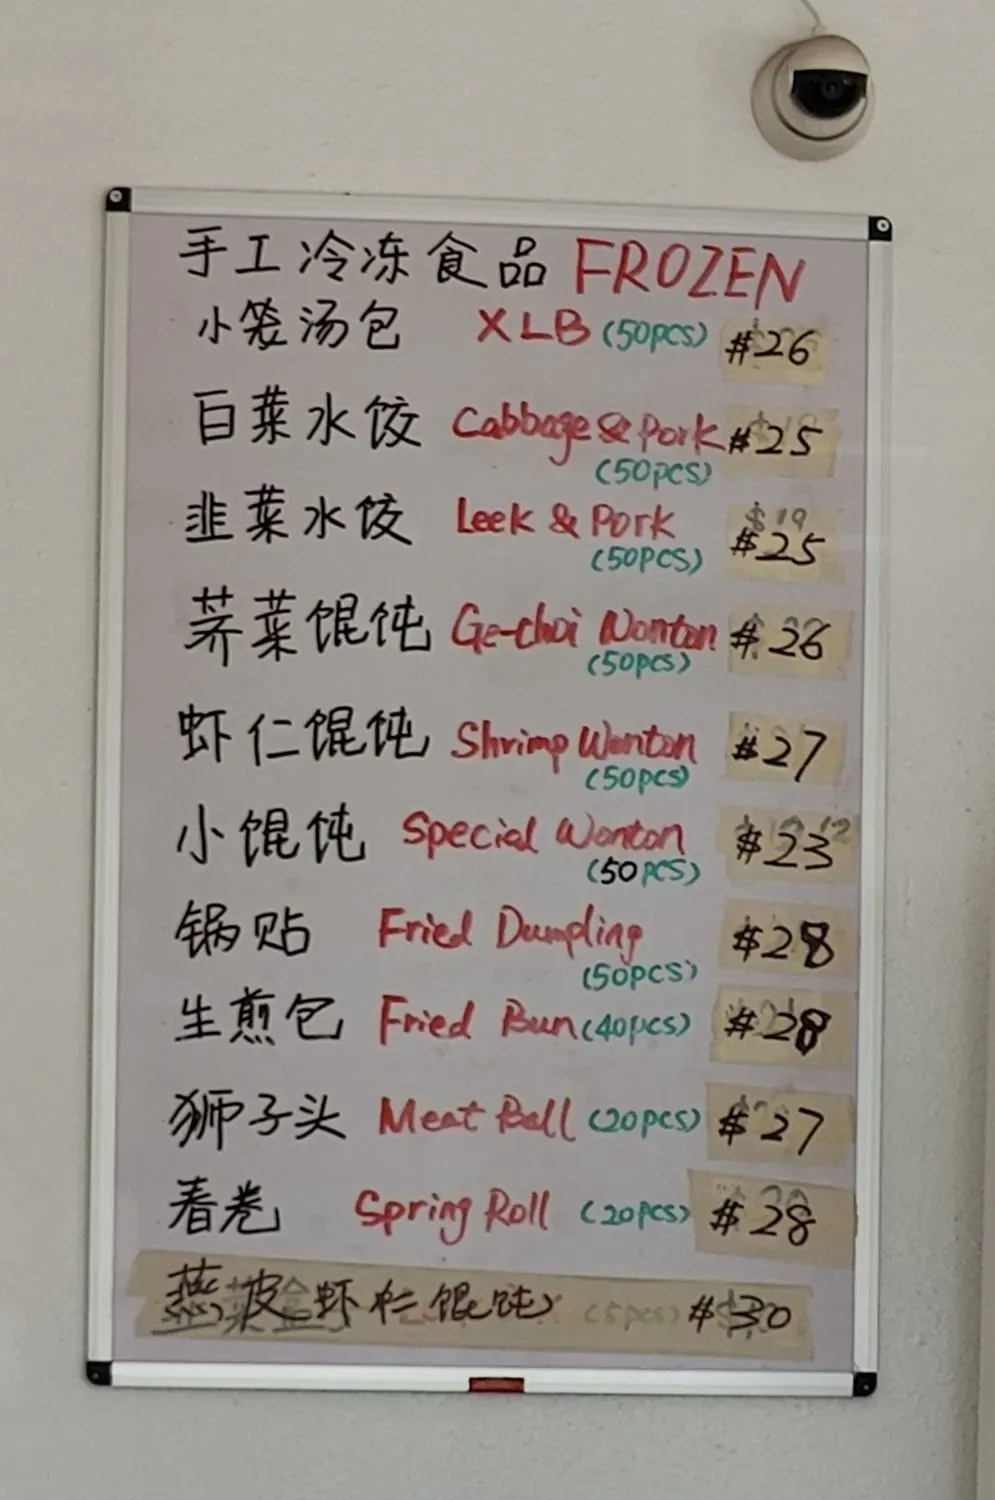 手工冷冻食品 FROZEN
小笼汤包 XLB (50pcs) $26
白菜水饺 Cabbage & Pork $25
(50pcs)
韭菜水饺 Leek & Pork $25
(50pcs)
荠菜馄饨 Ge-choi Wonton $26
(50pcs)
虾仁馄饨 Shrimp Wonton $27
(50pcs)
小馄饨 Special Wonton $23
(50pcs)
锅贴 Fried Dumpling $28
(50pcs)
生煎包 Fried Bun (40pcs) $28
狮子头 Meat Ball (20pcs) $27
春卷 Spring Roll (20pcs) $28
燕皮虾仁馄饨 (5pcs) $30